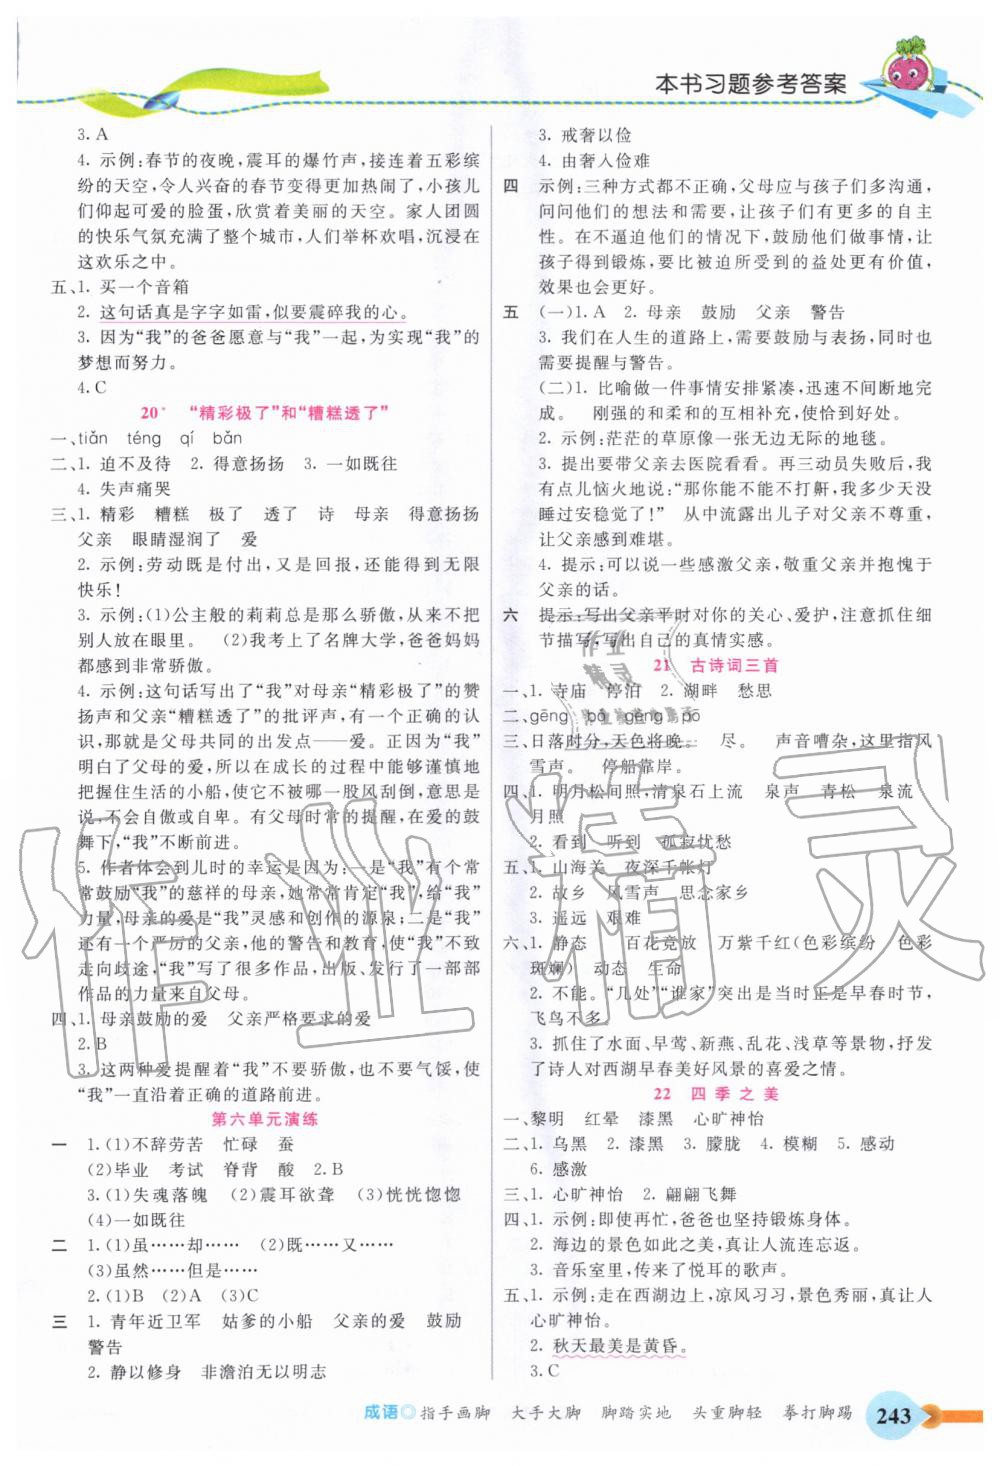 本书习题参考答案
3. A
4. 示例:春节的夜晚,震耳的爆竹声,接连着五彩缤
纷的天空,令人兴奋的春节变得更加热闹了,小孩儿
们仰起可爱的脸蛋,欣赏着美丽的天空。家人团圆
的快乐气氛充满了整个城市,人们举杯欢唱,沉浸在
这欢乐之中。
五、1. 买一个音箱
2. 这句话真是字字如雷,似要震碎我的心。
3. 因为“我”的爸爸愿意与“我”一起,为实现“我”的
梦想而努力。
4. C
20* “精彩极了”和“糟糕透了”
一、tiǎn téng qí bǎn
二、1. 迫不及待 2. 得意扬扬 3. 一如既往
4. 失声痛哭
三、1. 精彩 糟糕 极了 透了 诗 母亲 得意扬扬
父亲 眼睛湿润了 爱
2. 示例:劳动既是付出,又是回报,还能得到无限
快乐!
3. 示例:(1)公主般的莉莉总是那么骄傲,从来不把
别人放在眼里。 (2)我考上了名牌大学,爸爸妈妈
都感到非常骄傲。
4. 示例:这句话写出了“我”对母亲“精彩极了”的赞
扬声和父亲“糟糕透了”的批评声,有一个正确的认
识,那就是父母共同的出发点——爱。正因为“我”
明白了父母的爱,所以在成长的过程中能够谨慎地
把握住生活的小船,使它不被哪一股风刮倒,就是
说,不会自傲或自卑。有父母时常的提醒,在爱的鼓
舞下,“我”不断前进。
5. 作者体会到儿时的幸运是因为:一是“我”有个常
常鼓励“我”的慈祥的母亲,她常常肯定“我”,给“我”
力量,母亲的爱是“我”灵感和创作的源泉;二是“我”
还有一个严厉的父亲,他的警告和教育,使“我”不致
走向歧途,“我”写了很多作品,出版、发行了一部部
作品的力量来自父母。
四、1. 母亲鼓励的爱 父亲严格要求的爱
2. B
3. 这两种爱提醒着“我”不要骄傲,也不要气馁,使
“我”一直沿着正确的道路前进。
第六单元演练
一 1. (1)不辞劳苦 忙碌 蚕
(2)毕业 考试 脊背 酸 2. B
3. (1)失魂落魄 (2)震耳欲聋 (3)恍恍惚惚
(4)一如既往
二 1. (1)虽……却…… (2)既……又……
(3)虽然……但是……
2. (1)B (2)A (3)C
三 1. 青年近卫军 姑爹的小船 父亲的爱 鼓励
警告
2. 静以修身 非澹泊无以明志
3. 戒奢以俭
4. 由奢入俭难
四 示例:三种方式都不正确,父母应与孩子们多沟通,
问问他们的想法和需要,让孩子们有更多的自主
性。在不逼迫他们的情况下,鼓励他们做事情,让
孩子得到锻炼,要比被迫所受到的益处更有意义,
效果也会更好。
五 (一)1. A 2. 母亲 鼓励 父亲 警告
3. 我们在人生的道路上,需要鼓励与表扬,同时也
需要提醒与警告。
(二)1. 比喻做一件事情安排紧凑,迅速不间断地完
成。 刚强的和柔和的互相补充,使恰到好处。
2. 示例:茫茫的草原像一张无边无际的地毯。
3. 提出要带父亲去医院看看。再三动员失败后,我
有点儿恼火地说:“那你能不能不打鼾,我多少天没
睡过安稳觉了!” 从中流露出儿子对父亲不尊重,
让父亲感到难堪。
4. 提示:可以说一些感激父亲,敬重父亲并抱愧于
父亲的话。
六 提示:写出父亲平时对你的关心、爱护,注意抓住细
节描写,写出自己的真情实感。
21 古诗词三首
一、1. 寺庙 停泊 2. 湖畔 愁思
二、gēng bó gēng pō
三、日落时分,天色将晚。 尽。 声音嘈杂,这里指风
雪声。 停船靠岸。
四、1. 明月松间照,清泉石上流 泉声 青松 泉流
月照
2. 看到 听到 孤寂忧愁
五、1. 山海关 夜深千帐灯
2. 故乡 风雪声 思念家乡
3. 遥远 艰难
六、1. 静态 百花竞放 万紫千红(色彩缤纷 色彩
斑斓) 动态 生命
2. 不能。“几处”“谁家”突出是当时正是早春时节,
飞鸟不多。
3. 抓住了水面、早莺、新燕、乱花、浅草等景物,抒发
了诗人对西湖早春美好风景的喜爱之情。
22 四季之美
一、黎明 红晕 漆黑 心旷神怡
二、1. 乌黑 2. 漆黑 3. 朦胧 4. 模糊 5. 感动
6. 感激
三、1. 心旷神怡 2. 翩翩飞舞
四、1. 示例:即使再忙,爸爸也坚持锻炼身体。
2. 海边的景色如此之美,真让人流连忘返。
3. 音乐室里,传来了悦耳的歌声。
五、1. 示例:走在西湖边上,凉风习习,景色秀丽,真让人
心旷神怡。
2. 秋天最美是黄昏。
3. C
成语◎指手画脚 大手大脚 脚踏实地 头重脚轻 拳打脚踢
243
作业精灵
作业精灵